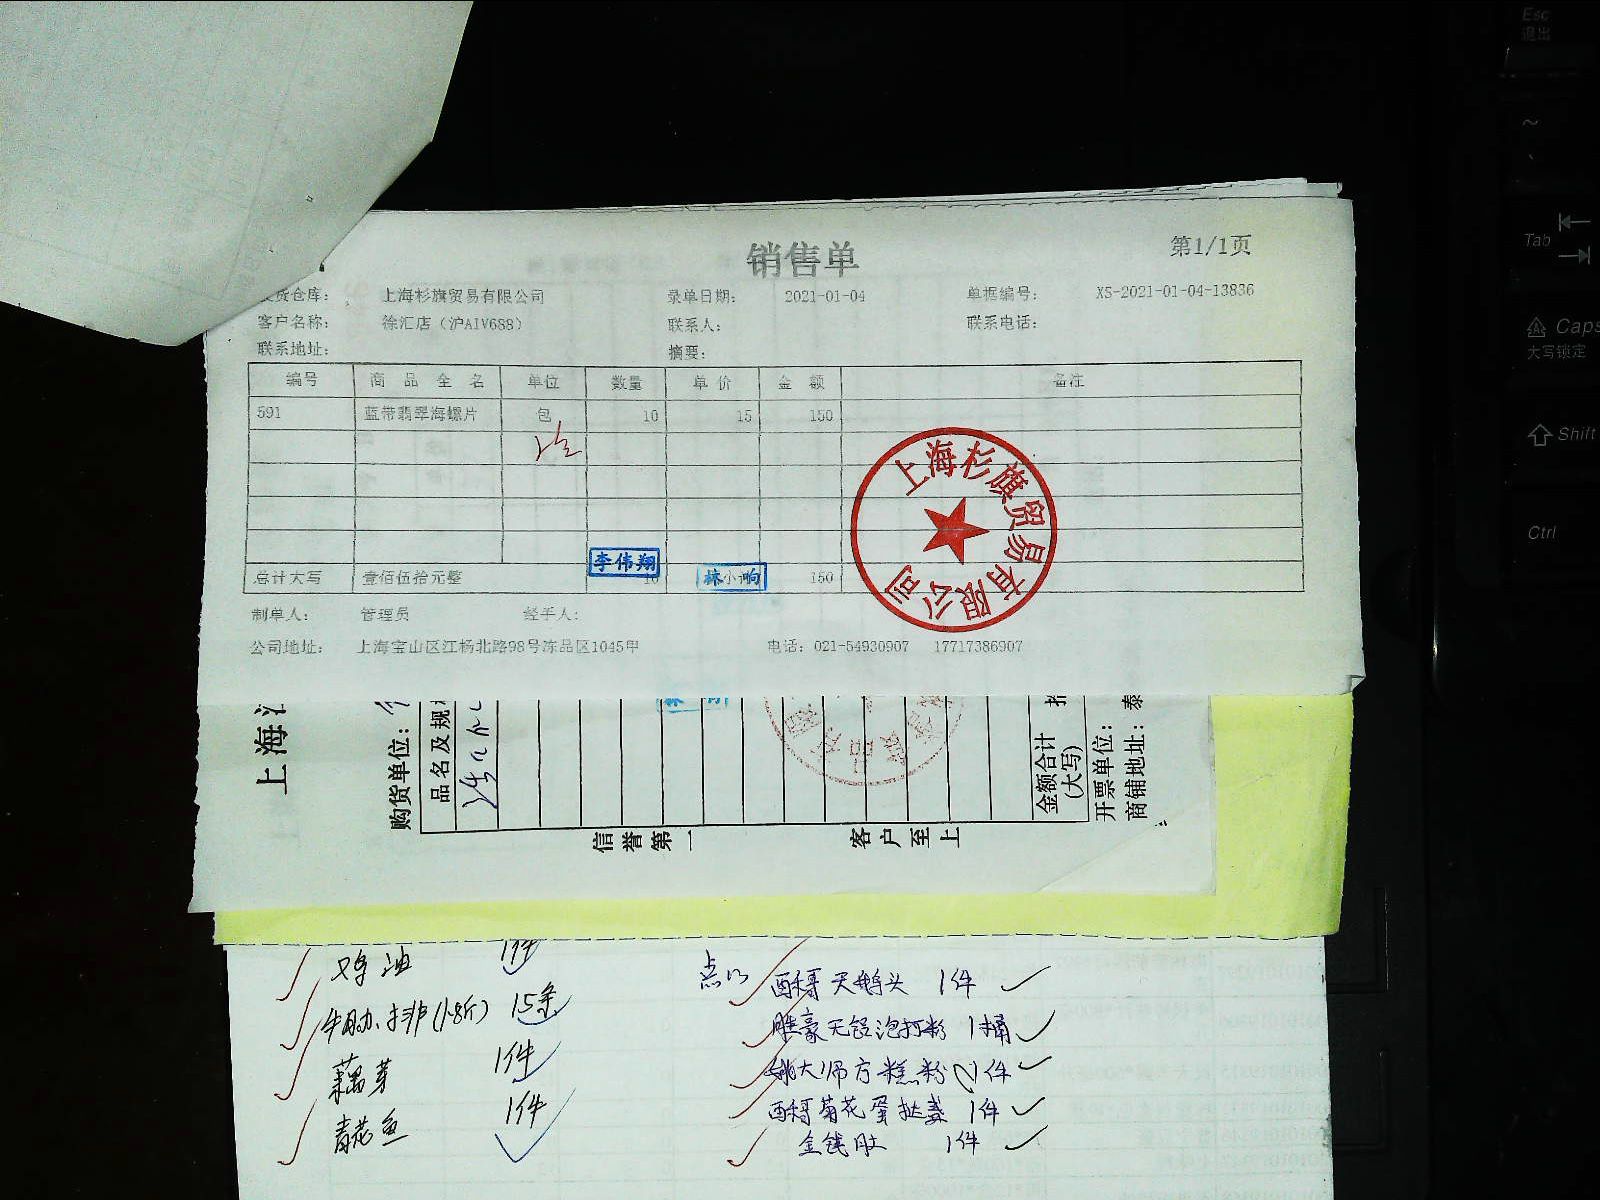 销售单
第1/1页
货仓库： 上海杉旗贸易有限公司 录单日期： 2021-01-04 单据编号： XS-2021-01-04-13836
客户名称： 徐汇店（沪AIV688） 联系人： 联系电话：
联系地址： 摘要：
编号 商品全名 单位 数量 单价 金额 备注
591 蓝带翡翠海螺片 包 10 15 150
总计大写 壹佰伍拾元整 10 150
李伟翔
林小响
上海杉旗贸易有限公司
制单人： 管理员 经手人：
公司地址： 上海宝山区江杨北路98号冻品区1045甲 电话：021-54930907 17717386907
上海
购货单位：
品名及规
金额合计
(大写)
开票单位：
商铺地址：泰
信誉第一 客户至上
鸡油 1件
牛肋排(1.8斤) 15条
藕芽 1件
青花鱼 1件
点心 酥得天鹅头 1件
胜豪无铝泡打粉 1桶
姚大师方糕粉 1件
酥得菊花蛋挞盏 1件
金钱肚 1件
Esc
退出
~
Tab
Caps
大写锁定
Shift
Ctrl